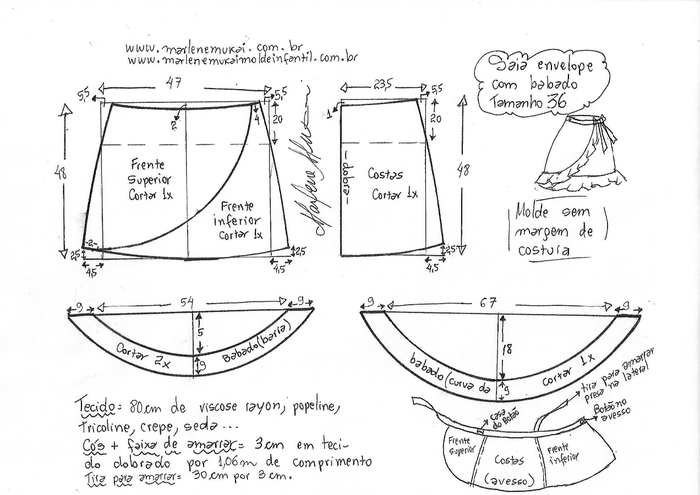 www.marlenemukai.com.br
www.marlenemukaimoldeinfantil.com.br
Saia envelope
com babado
Tamanho 36
5,5
47
5,5
2
4
20
48
Frente
Superior
Cortar 1x
Frente
inferior
Cortar 1x
2
2,5
4,5
4,5
2,5
Marlene Mukai
23,5
5,5
1
20
48
dobra
Costas
Cortar 1x
4,5
2,5
Molde sem
margem de
costura
9
54
9
5
9
Cortar 2x
Babado (barra)
9
67
9
18
9
babado (curva da
cortar 1x
Tecido = 80cm de viscose rayon, popeline,
tricoline, crepe, seda ...
Cós + faixa de amarrar = 3cm em teci-
do dobrado por 1,06m de comprimento
Tira para amarrar = 30cm por 3cm.
casa
do Botão
tira para amarrar
presa na lateral
Botão no
avesso
Frente
superior
Costas
(avesso)
Frente
inferior